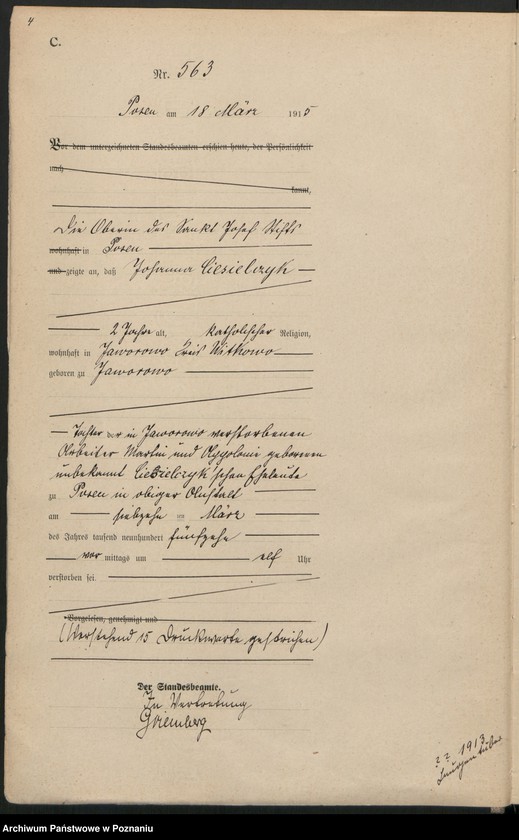 4
C.
Nr. 563
Posen am 18 März 1915
Vor dem unterzeichneten Standesbeamten erschien heute, der Persönlichkeit
nach
kannt,
Die Oberin des Sankt Josef Stifts
wohnhaft in Posen
und zeigte an, daß Johanna Ciesielczyk
2 Jahre alt, katholischer Religion,
wohnhaft in Jaworowo Kreis Witkowo
geboren zu Jaworowo
Tochter der in Jaworowo verstorbenen
Arbeiter Martin und Apolonie geborenen
unbekannt Ciesielczyk'schen Eheleute
zu Posen in obiger Anstalt
am siebzehn ten März
des Jahres tausend neunhundert fünfzehn
vor mittags um elf Uhr
verstorben sei.
Vorgelesen, genehmigt und
(Vorstehend 15 Druckworte gestrichen)
Der Standesbeamte.
In Vertretung
1913
Archiwum Państwowe w Poznaniu